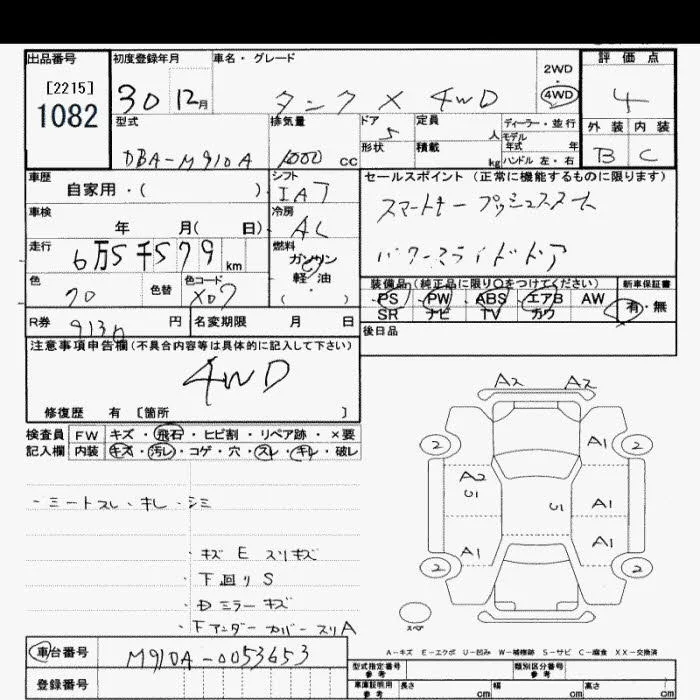 出品番号
[2215]
1082
初度登録年月
30 12月
車名・グレード
タンク X 4WD
2WD
・
4WD
評価点
4
外装 内装
B C
型式
DBA-M910A
排気量
1000 cc
ドア
5
形状
定員
人
積載
kg
ディーラー・並行
モデル
年式 年
ハンドル 左・右
車歴
自家用・( )
シフト
IAT
車検
年 月( 日)
冷房
AC
走行
6万5千579 km
燃料
ガソリン
・
軽・油
( ・ )
色
色替
色コード
X07
R券
円
名変期限 月 日
セールスポイント (正常に機能するものに限ります)
スマートキー プッシュスタート
パワースライドドア
装備品(純正品に限り○をつけてください)
PS PW ABS エアB AW
SR ナビ TV カワ
新車保証書
有・無
後日品
注意事項申告欄(不具合内容等は具体的に記入して下さい)
4WD
修復歴 有 〔箇所 〕
検査員 FW キズ・飛石・ヒビ割・リペア跡・×要
記入欄 内装 キズ・汚レ・コゲ・穴・スレ・キレ・破レ
・シートスレ・キレ・シミ
・キズ E スリキズ
・下回り S
・Dミラーキズ
・Fアンダーカバースリ A
A2 A2
2 A1 2
A2 U1 U1 A1
A1 A1
2 2
スペア
A-キズ E-エクボ U-凹み W-補修跡 S-サビ C-腐食 XX-交換済
車台番号
M910A-0053653
登録番号
型式指定番号
参考
類別区分番号
参考
車庫証明用
参考
長さ cm 幅 cm 高さ cm